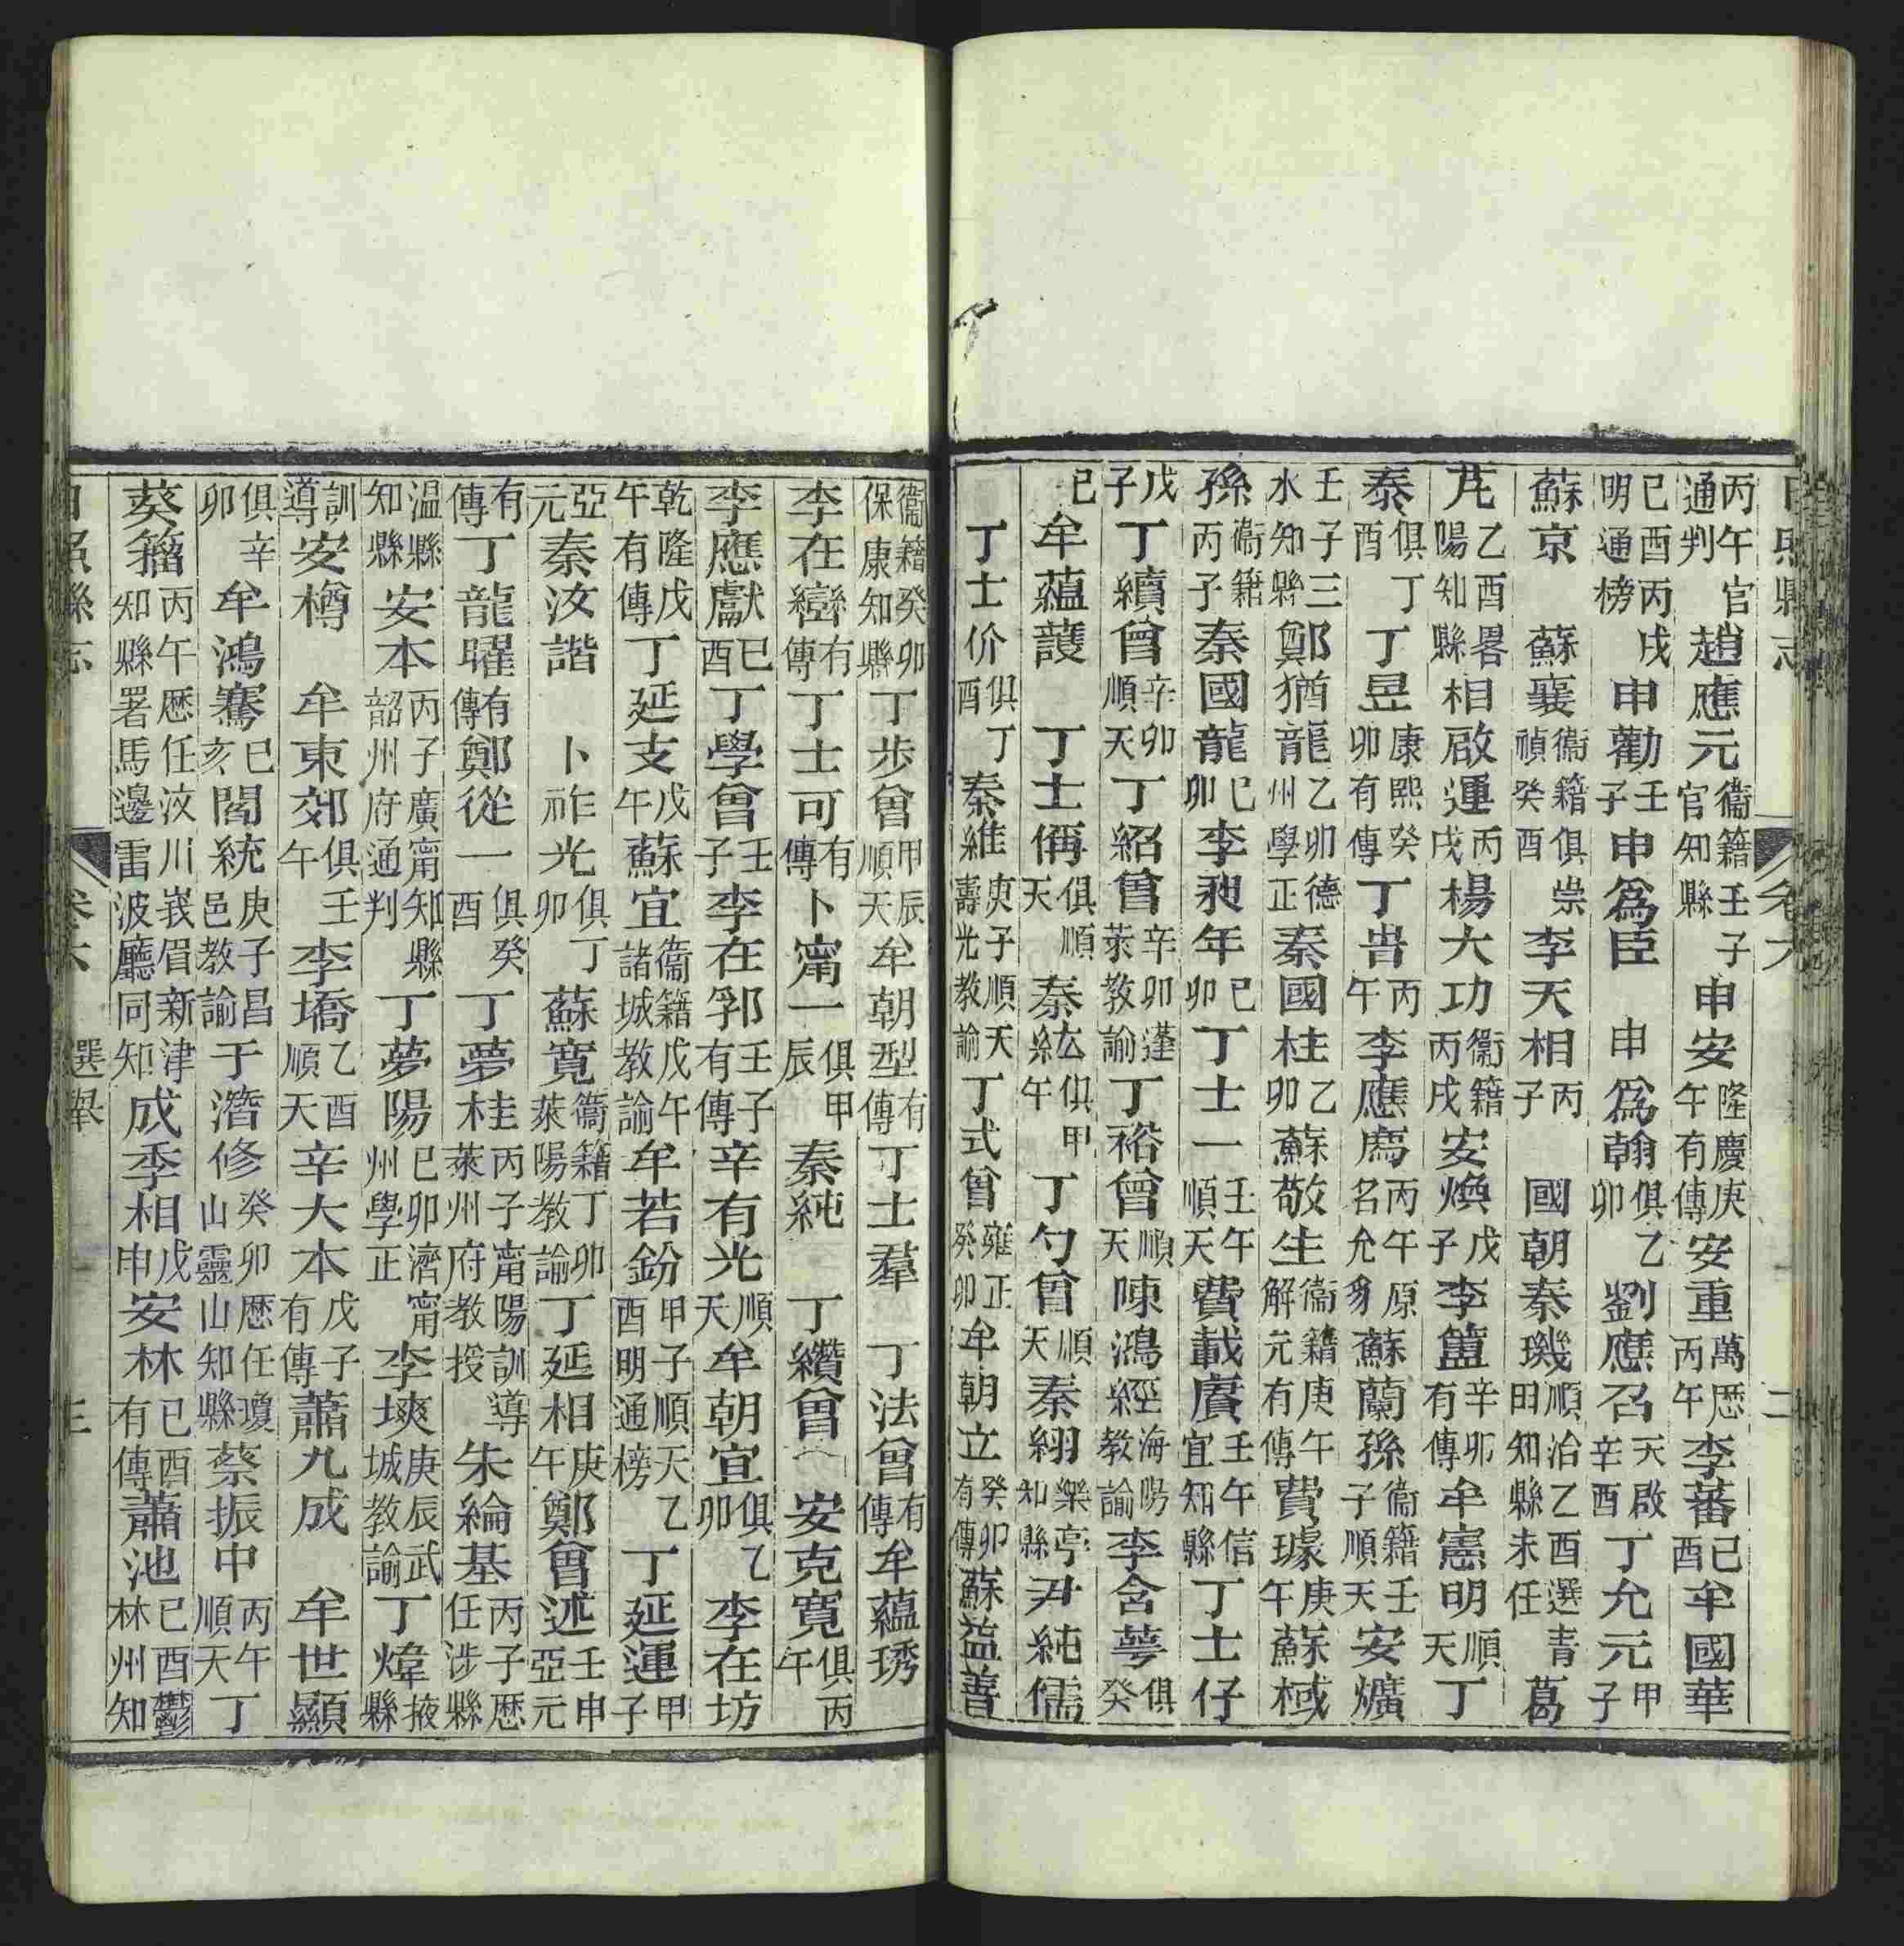 日照縣志 卷六 二
丙午官通判趙應元衞籍壬子官知縣申安隆慶庚午有傳安重萬歷丙午李蕃己酉牟國華
己酉丙戌明通榜申勸壬子申爲臣 申爲翰俱乙卯劉應召天啟辛酉丁允元甲子
蘇京 蘇襄衞籍俱崇禎癸酉李天相丙子 國朝秦璣順治乙酉選青田知縣未任葛
芃乙酉畧陽知縣相啟運丙戌楊大功衞籍丙戌安煥戊子李簠辛卯有傳牟憲明順天丁
泰俱丁酉丁昱康熙癸卯有傳丁旹丙午李應廌丙午原名允豸蘇蘭孫衞籍壬子順天安爌
壬子三水知縣鄭猶龍乙卯德州學正秦國柱乙卯蘇敬生衞籍庚午解元有傳費璩庚午蘇棫
孫衞籍丙子秦國龍己卯李昶年己卯丁士一壬午順天費載賡壬午信宜知縣丁士仔
戊子丁續曾辛卯順天丁紹曾辛卯蓬萊教諭丁裕曾順天陳鴻經海陽教諭李含萼俱癸
巳牟蘊䕶 丁士偁俱順天秦紘俱甲午丁勺曾順天秦䎗樂亭知縣尹純儒
丁士价俱丁酉秦維庚子順天壽光教諭丁式曾雍正癸卯牟朝立癸卯有傳蘇益善
衞籍癸卯保康知縣丁步曾甲辰順天牟朝型有傳丁士羣 丁法曾有傳牟蘊琇
李在巒有傳丁士可有傳卜甯一俱甲辰秦純 丁纘曾 安克寛俱丙午
李應獻己酉丁學曾壬子李在郛壬子有傳辛有光順天牟朝宜俱乙卯李在坊
乾隆戊午有傳丁延支戊午蘇宜衞籍戊午諸城教諭牟若鈖甲子順天乙酉明通榜丁延運甲子
亞元秦汝諧 卜祚光俱丁卯蘇寛衞籍丁卯萊陽教諭丁延相庚午鄭曾述壬申亞元
有傳丁龍曜有傳鄭從一俱癸酉丁夢桂丙子甯陽訓導萊州府教授朱綸基丙子歷任涉縣
温縣知縣安本丙子廣甯知縣韶州府通判丁夢陽己卯濟甯州學正李塽庚辰武城教諭丁煒掖縣
訓導安樽 牟東郊俱壬午李墧乙酉順天辛大本戊子有傳蕭九成 牟世顯
俱辛卯牟鴻騫己亥閻統庚子昌邑教諭于濳修癸卯歷任瓊山靈山知縣蔡振中丙午順天丁
葵籀丙午歷任汶川峩眉新津知縣署馬邊雷波廳同知成季相戊申安林己酉有傳蕭池己酉鬱林州知
日照縣志 卷六 選舉 三